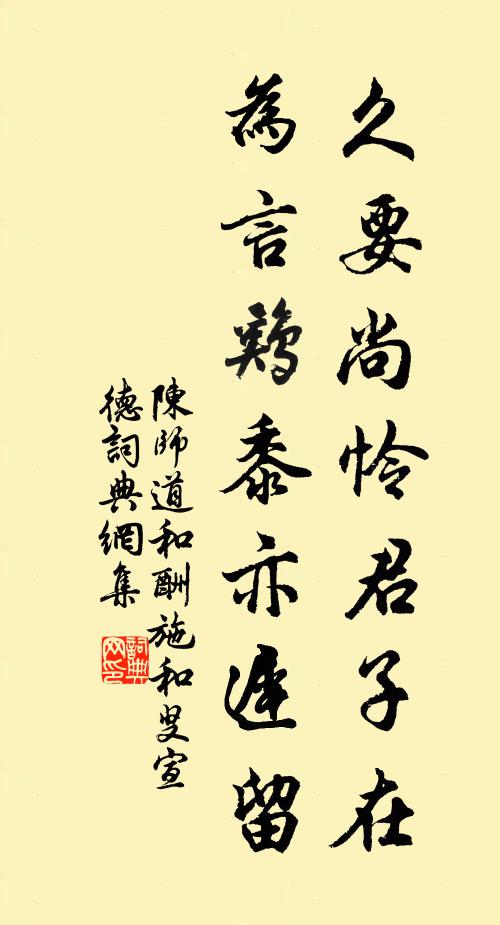 久要尚怜君子在
為言鷄黍亦遲留
陳師道和酬施和叟宣
德詞典網集
詞典網印